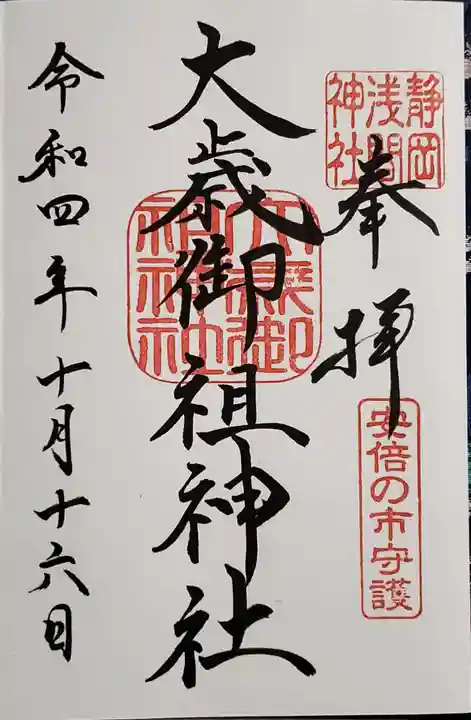 奉拝
静岡
浅間
神社
安倍の市守護
大歳御祖神社
大歳御
祖神社
令和四年十月十六日